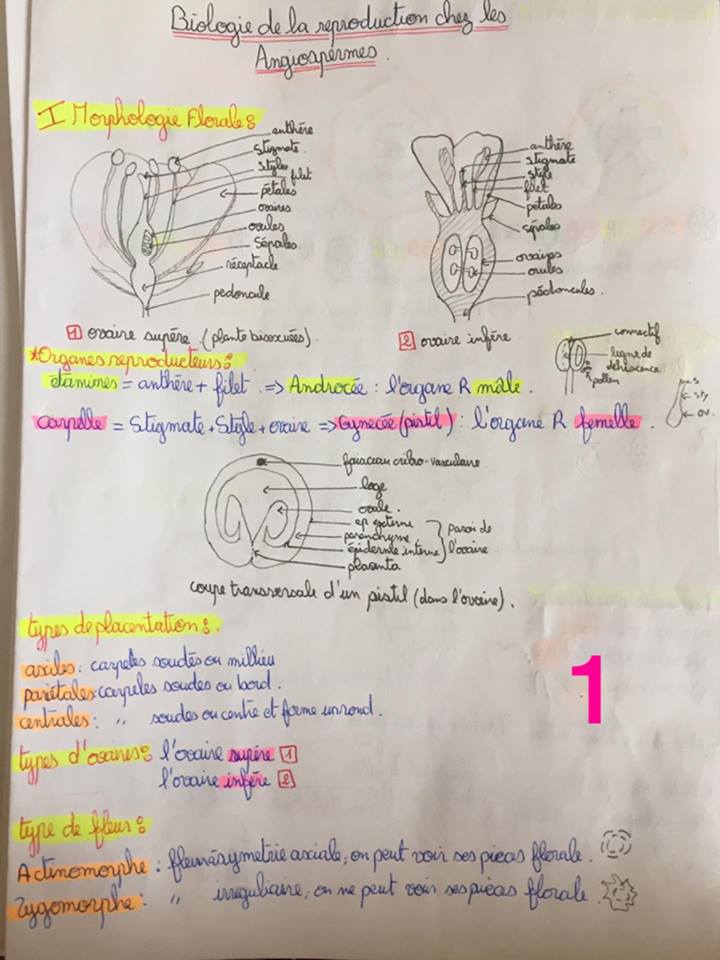 Biologie de la reproduction chez les
Angiospermes.
I Morphologie Florale :
anthère
stigmate.
styles
filet
pétales
ovaires
ovules
Sépales.
réceptacle
pedoncule
anthère
stigmate
style
filet
pétales
sépales
ovaires
ovules
pédoncules.
1 ovaire supère. (plante bisexuées).
2 ovaire infère
connectif
ligne de
déhiscence
pollen
*Organes reproducteurs :
étamines = anthère + filet => Androcée : l'organe R mâle.
carpelle = Stigmate + Style + ovaire => Gynecée (pistil) : l'organe R femelle.
S
Sty
ov.
faisceau cribro-vasculaire
loge
ovule.
ep externe
parenchyme
épiderme interne
placenta
paroi de
l'ovaire
coupe transversale d'un pistil (dans l'ovaire).
types de placentation :.
axiles : carpeles soudés ou millieu
pariétales : carpeles soudes ou bord.
centrales : " soudes ou centre et forme un rond.
types d'ovaires : l'ovaire supère 1
l'ovaire infère 2
1
type de fleur :
Actinomorphe : fleur à symetrie axiale, on peut voir ses pieces florale.
Zygomorphe : " irreguliaire, on ne peut voir ses pièces florale.